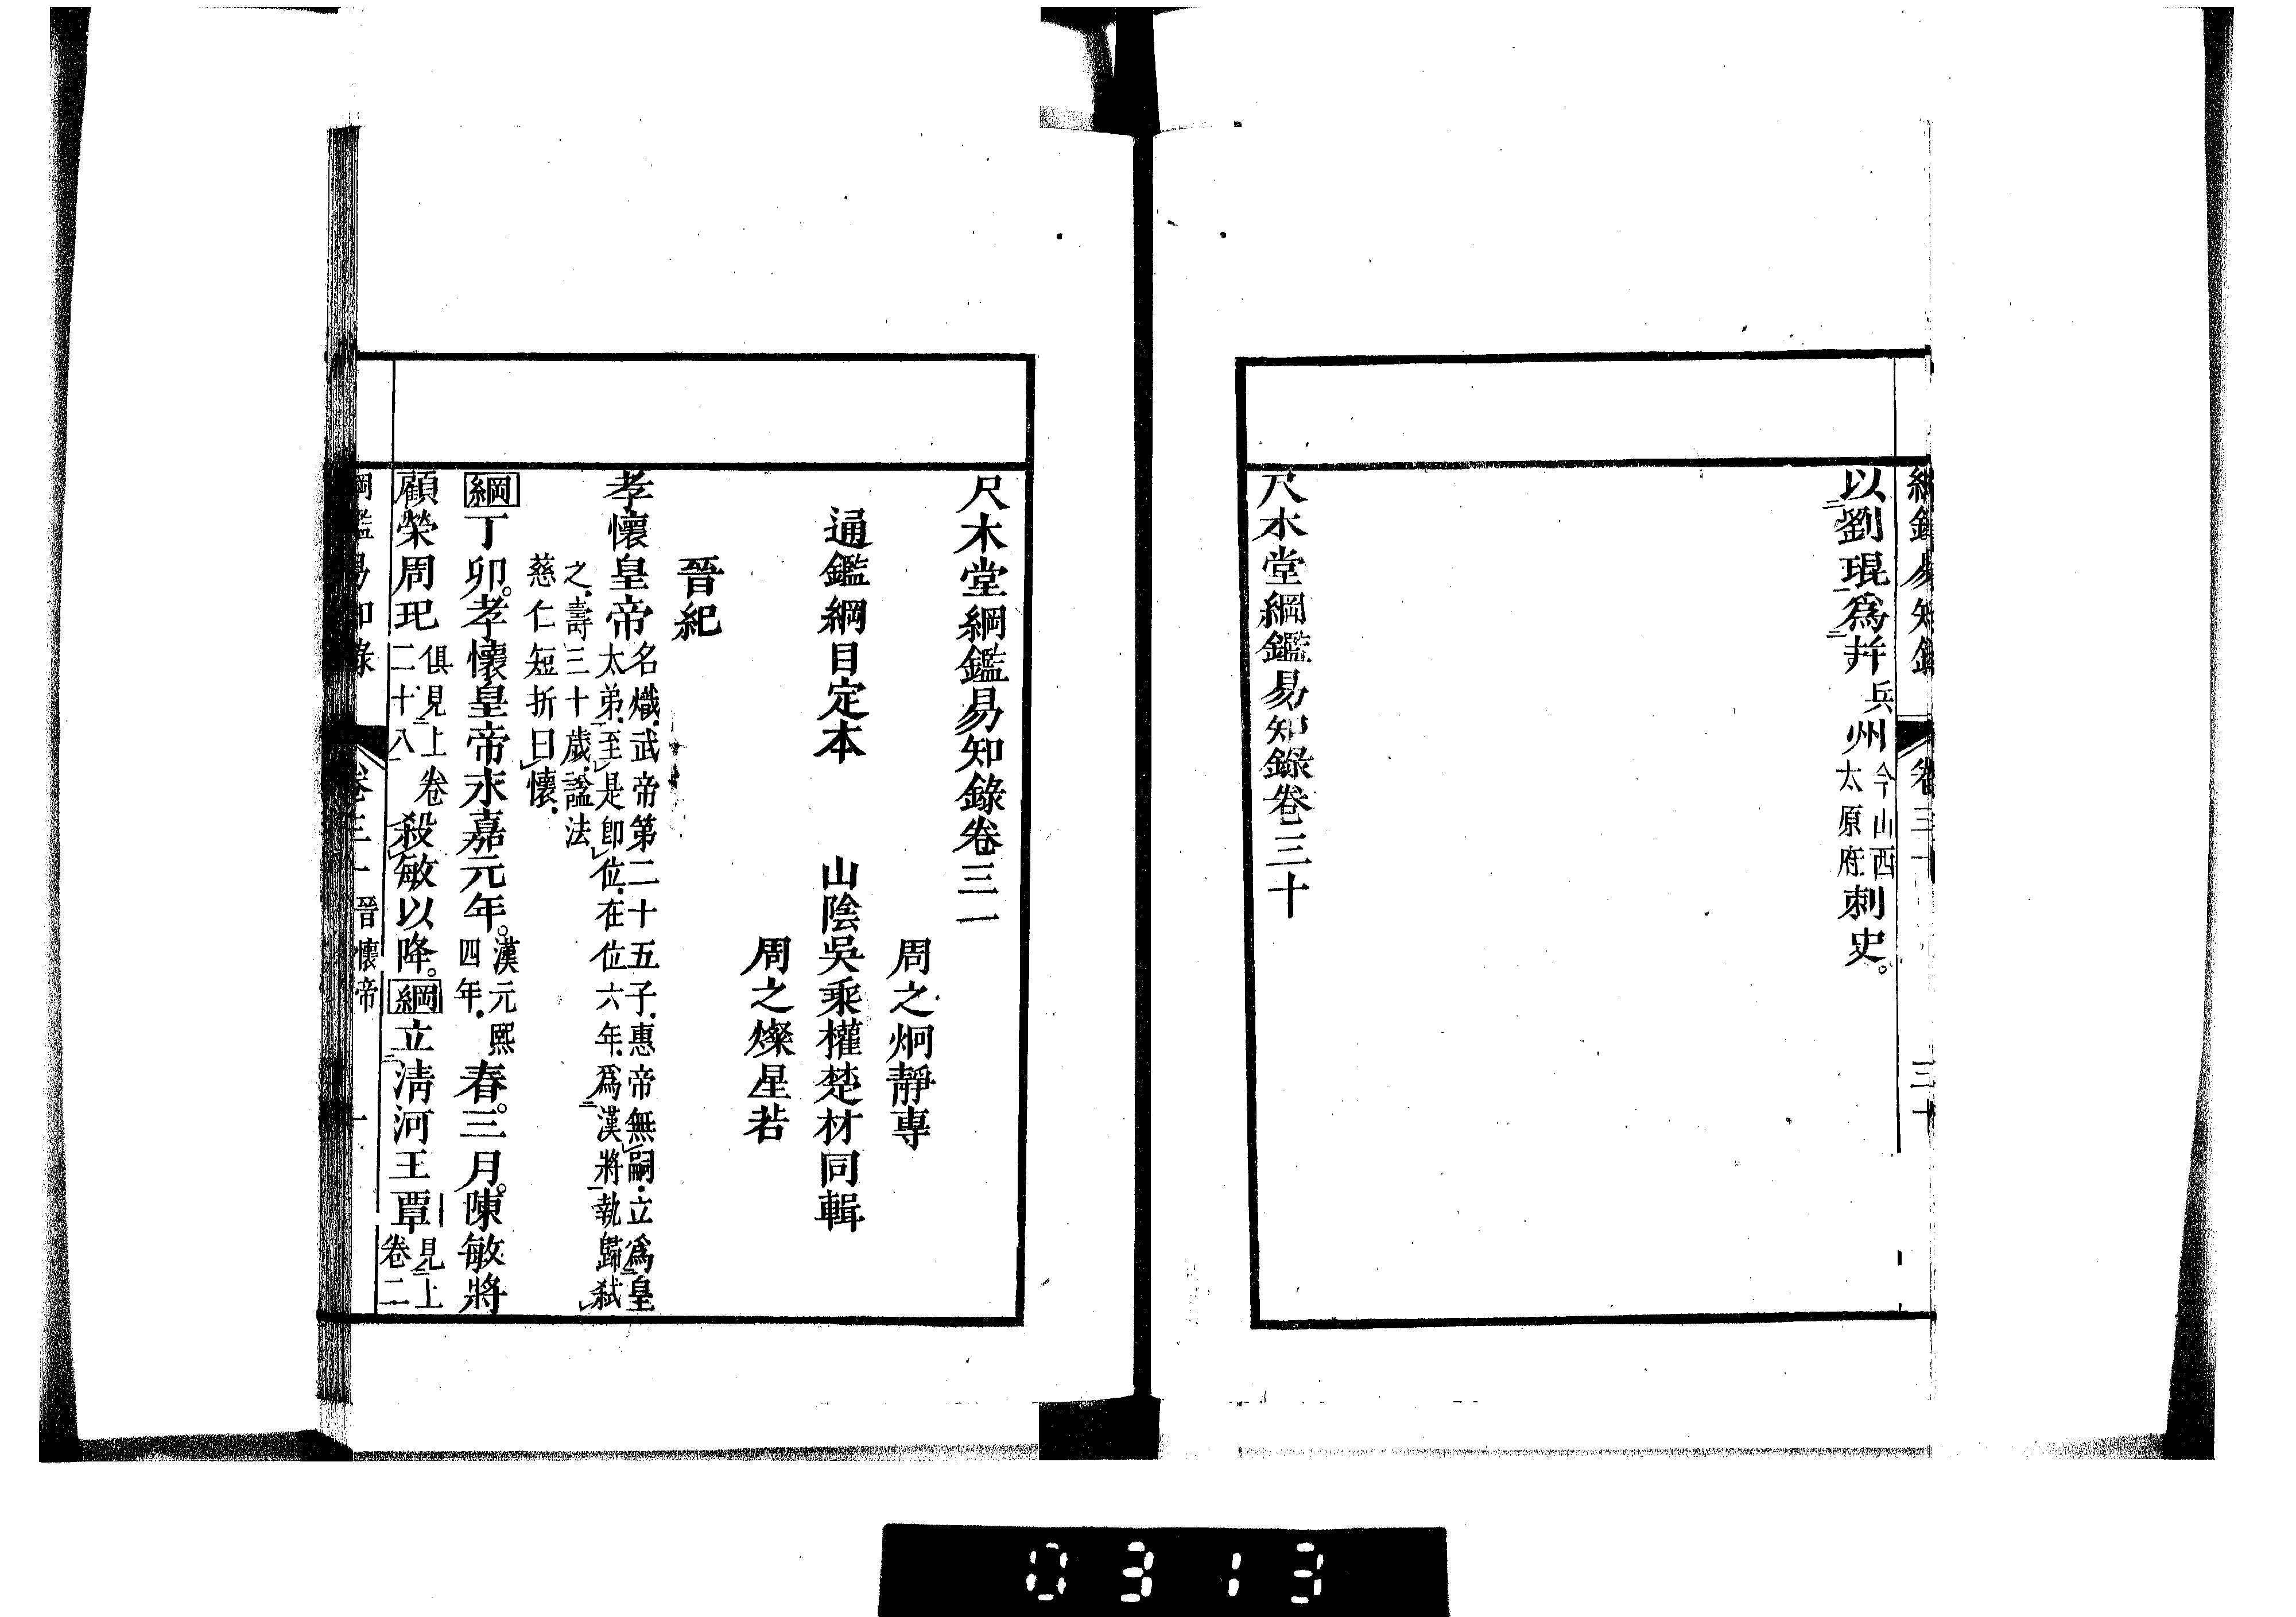 綱鑑易知錄 卷三十 三十
以劉琨爲幷兵州今山西太原府刺史。
尺木堂綱鑑易知錄卷三十
尺木堂綱鑑易知錄卷三一
周之炯靜專
通鑑綱目定本 山陰吳乘權楚材同輯
周之燦星若
晉紀
孝懷皇帝名熾武帝第二十五子惠帝無嗣立爲皇太弟至是卽位在位六年爲漢將執歸弑
之壽三十歲諡法慈仁短折曰懷
綱丁卯。孝懷皇帝永嘉元年。漢元熙四年春。三月。陳敏將
顧榮周玘俱見上卷二十八殺敏以降。綱立淸河王覃見上卷二
綱鑑易知錄 卷三十一 晉懷帝 一
0313